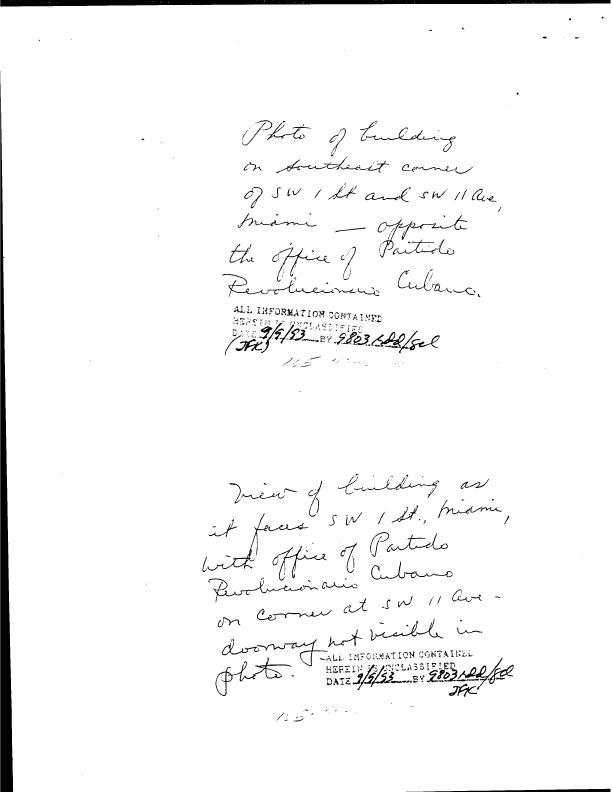 Photo of building
on southeast corner
of SW 1 St and SW 11 Ave,
Miami — opposite
the office of Partido
Revolucionario Cubano.
ALL INFORMATION CONTAINED
HEREIN IS UNCLASSIFIED
DATE 9/9/93 BY 9803
(JFK)
View of building as
it faces SW 1 St., Miami,
with office of Partido
Revolucionario Cubano
on corner at SW 11 Ave -
doorway not visible in
photo.
ALL INFORMATION CONTAINED
HEREIN IS UNCLASSIFIED
DATE 9/9/93 BY 9803
JFK